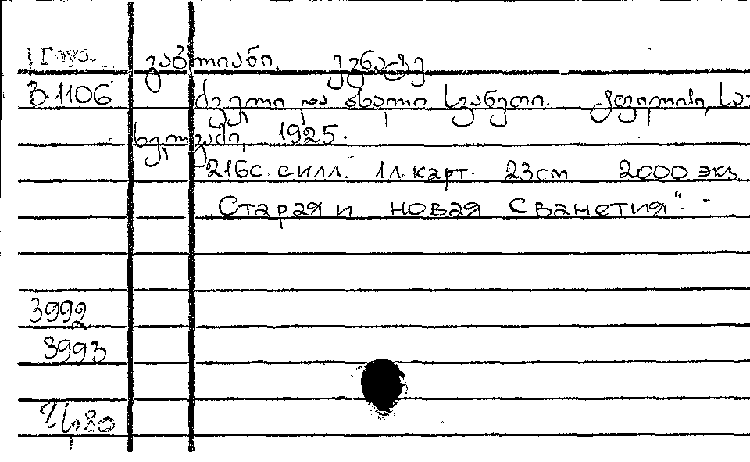 გაბლიანი. ეგნატე
В-1106 ძველი და ახალი სვანეთი. ტფილისი, სა-
ხელგამი, 1925.
216с. с илл. 1л. карт. 23см 2000 экз.
Старая и новая Сванетия".
3992
3993